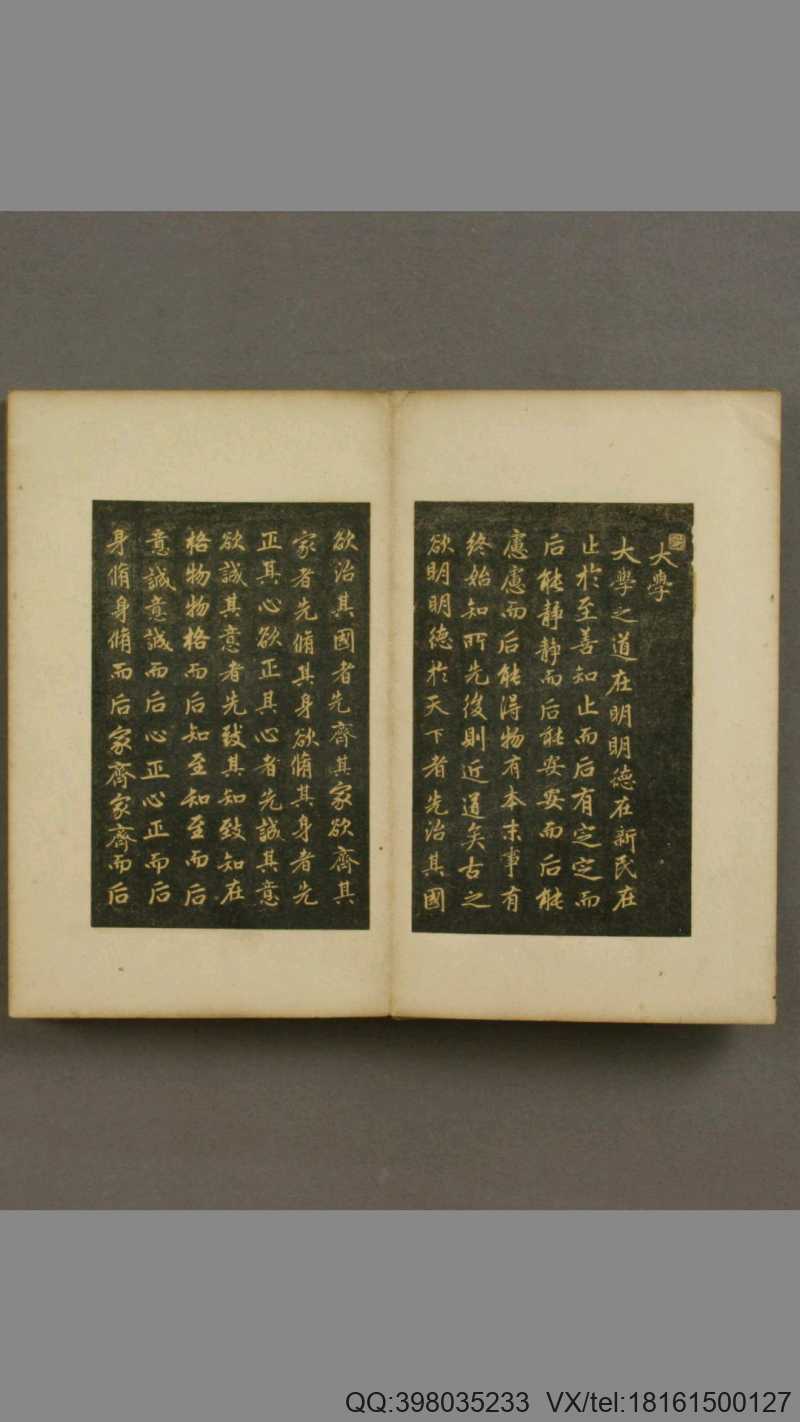 大學
大學之道在明明德在新民在
止於至善知止而后有定定而
后能靜靜而后能安安而后能
慮慮而后能得物有本末事有
終始知所先後則近道矣古之
欲明明德於天下者先治其國
欲治其國者先齊其家欲齊其
家者先脩其身欲脩其身者先
正其心欲正其心者先誠其意
欲誠其意者先致其知致知在
格物物格而后知至知至而后
意誠意誠而后心正心正而后
身脩身脩而后家齊家齊而后
QQ:398035233 VX/tel:18161500127